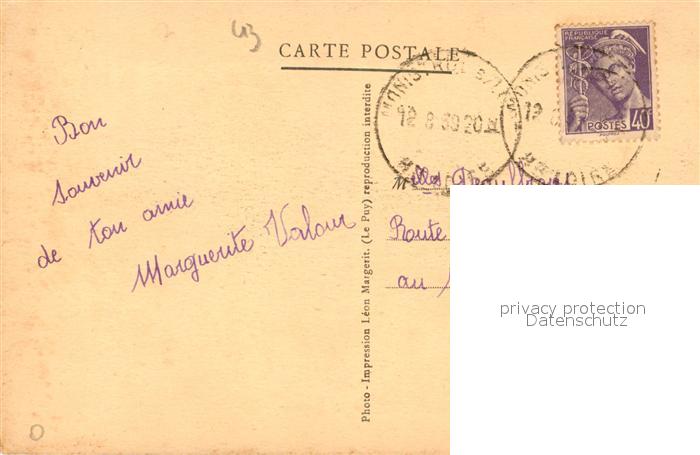 43
CARTE POSTALE
RÉPUBLIQUE
FRANÇAISE
POSTES 40c
12-8 39 20
Hte LOIRE
Bon
souvenir
de ton amie
Marguerite Valour
Photo - Impression Léon Margerit. (Le Puy) reproduction interdite
Route
au
privacy protection
Datenschutz